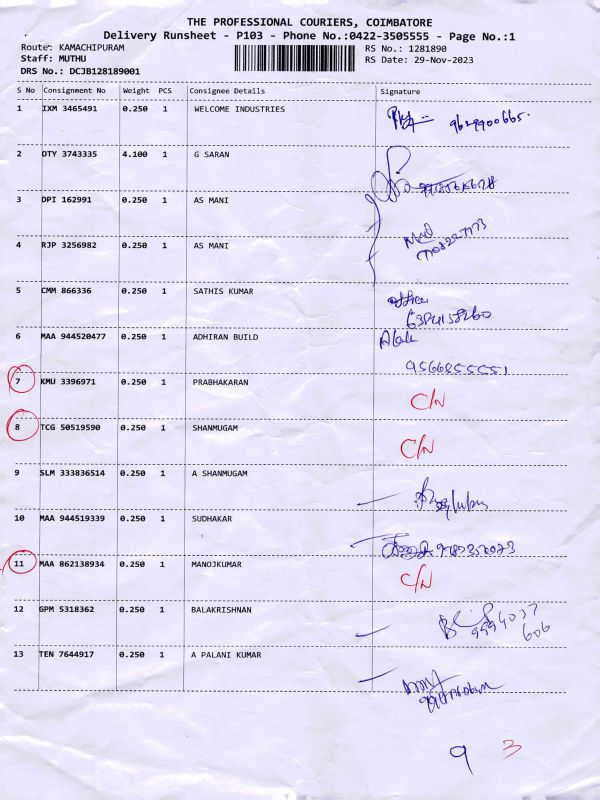 THE PROFESSIONAL COURIERS, COIMBATORE
Delivery Runsheet - P103 - Phone No.:0422-3505555 - Page No.:1
Route: KAMACHIPURAM RS No.: 1281890
Staff: MUTHU RS Date: 29-Nov-2023
DRS No.: DCJB128189001
S No Consignment No Weight PCS Consignee Details Signature
1 IXM 3465491 0.250 1 WELCOME INDUSTRIES 9629900665.
2 OTY 3743335 4.100 1 G SARAN
3 DPI 162991 0.250 1 AS MANI
4 RJP 3256982 0.250 1 AS MANI
5 CMM 866336 0.250 1 SATHIS KUMAR
6 MAA 944520477 0.250 1 ADHIRAN BUILD
9566855551
7 KMU 3396971 0.250 1 PRABHAKARAN C/N
8 TCG 50519590 0.250 1 SHANMUGAM C/N
9 SLM 333836514 0.250 1 A SHANMUGAM
10 MAA 944519339 0.250 1 SUDHAKAR
11 MAA 862138934 0.250 1 MANOJKUMAR C/N
12 GPM 5318362 0.250 1 BALAKRISHNAN
606
13 TEN 7644917 0.250 1 A PALANI KUMAR
9 3